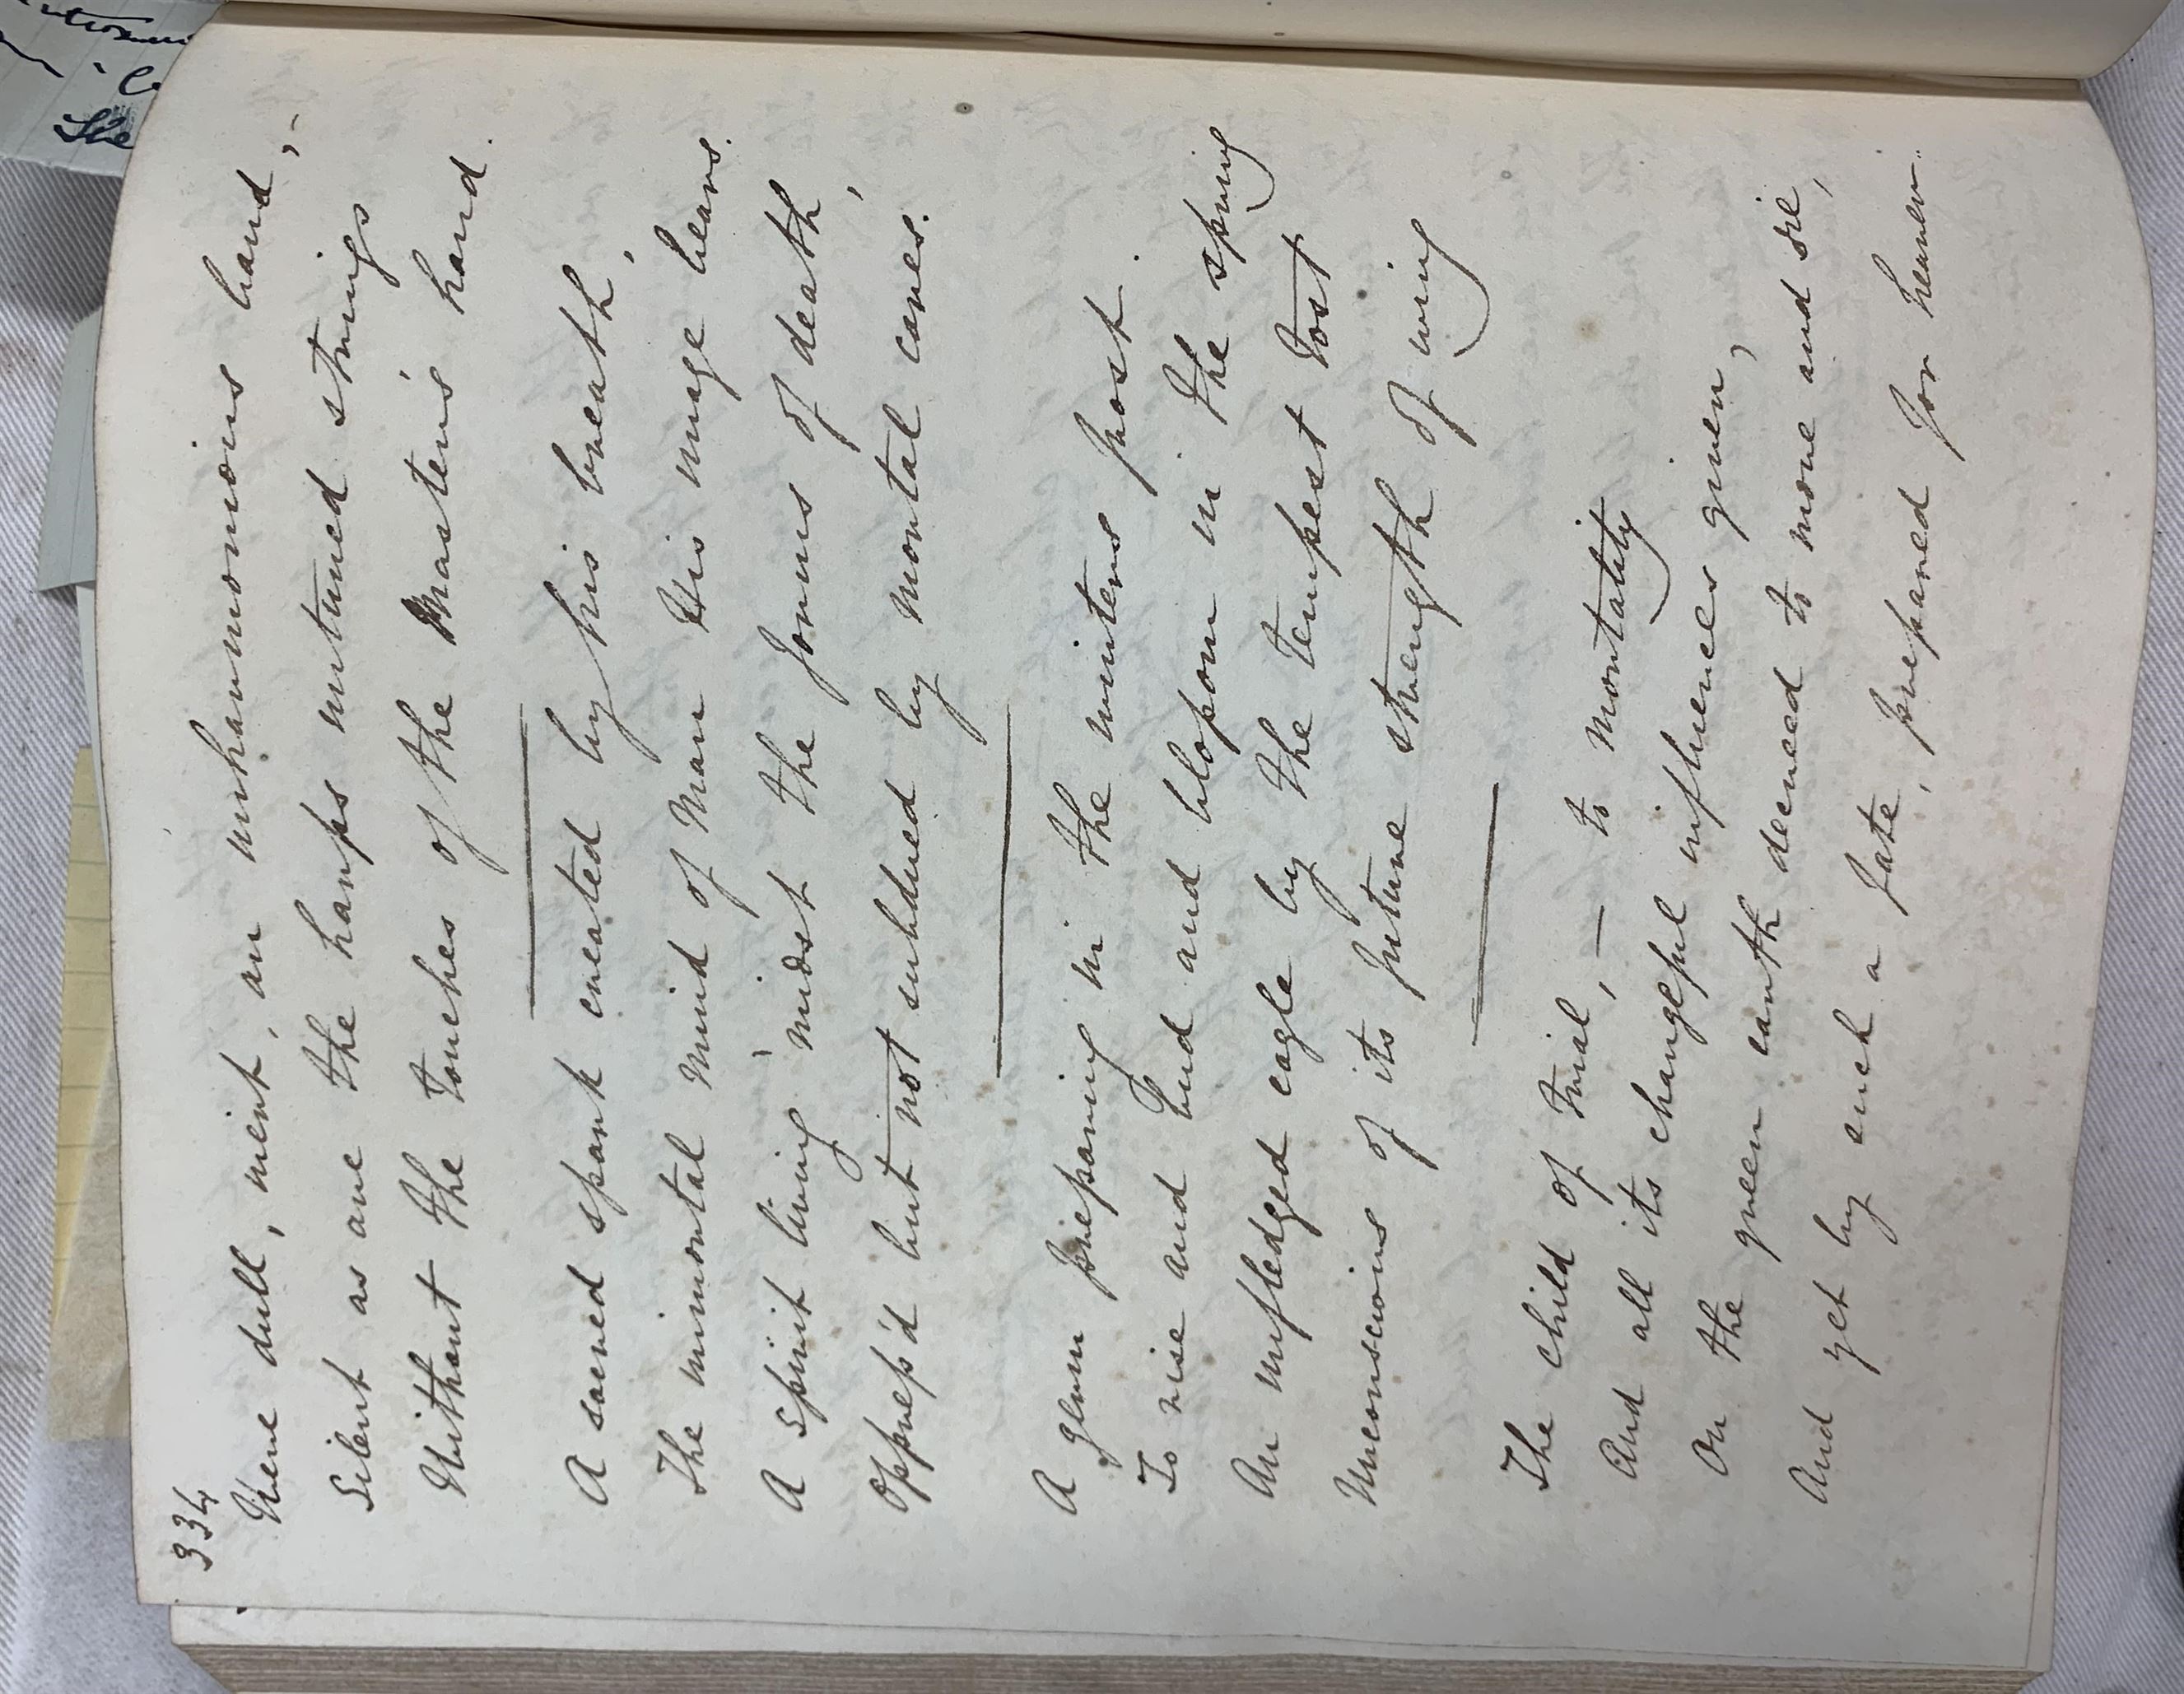 334
Were dull, inert, an unharmonious band, -
Silent as are the harps untuned strings
Without the touches of the Master's hand.
A sacred spark created by his breath,
The immortal mind of Man His image bears.
A Spirit living 'midst the forms of death,
Oppress'd but not subdued by mortal cares.
A germ preparing in the winters frost.
To rise and bud and blossom in the spring
An unfledged eagle by the tempest tost
Unconscious of its future strength of wing
The child of trial, — to mortality
And all its changeful influences given,
On the green earth decreed to move and die,
And yet by such a fate, prepared for heaven.
The